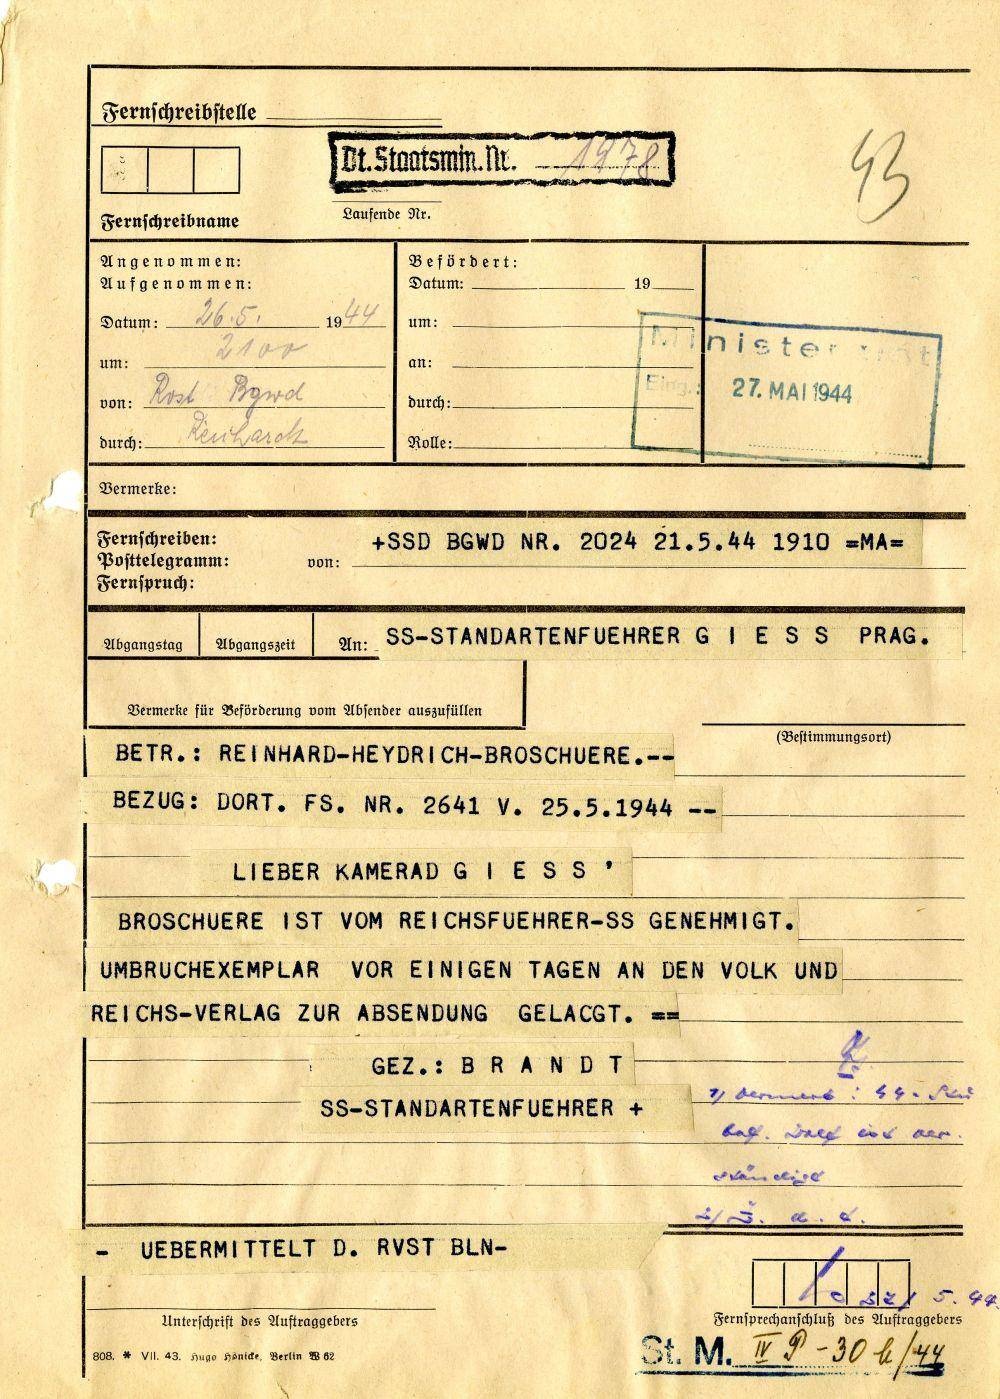 Fernschreibstelle
Dt. Staatsmin. Nr. 1978
43
Fernschreibname
Laufende Nr.
Angenommen:
Aufgenommen:
Datum: 26.5. 1944
um: 2100
von: Rost Bgwd
durch:
Befördert:
Datum: 19
um:
an:
durch:
Rolle:
Minister
Eing.: 27. MAI 1944
Vermerke:
Fernschreiben:
Posttelegramm:
Fernspruch:
von: +SSD BGWD NR. 2024 21.5.44 1910 =MA=
Abgangstag Abgangszeit An: SS-STANDARTENFUEHRER G I E S S PRAG.
Vermerke für Beförderung vom Absender auszufüllen
(Bestimmungsort)
BETR.: REINHARD-HEYDRICH-BROSCHUERE.--
BEZUG: DORT. FS. NR. 2641 V. 25.5.1944 --
LIEBER KAMERAD G I E S S '
BROSCHUERE IST VOM REICHSFUEHRER-SS GENEHMIGT.
UMBRUCHEXEMPLAR VOR EINIGEN TAGEN AN DEN VOLK UND
REICHS-VERLAG ZUR ABSENDUNG GELACGT. ==
GEZ.: B R A N D T
SS-STANDARTENFUEHRER +
1/ Vermerk:
ist ver-
ständigt
2/ Z. d. A.
- UEBERMITTELT D. RVST BLN-
5. 44
Unterschrift des Auftraggebers
Fernsprechanschluß des Auftraggebers
808. * VII. 43. Hugo Hönicke, Berlin W 62
St. M. IV P - 30 b/44